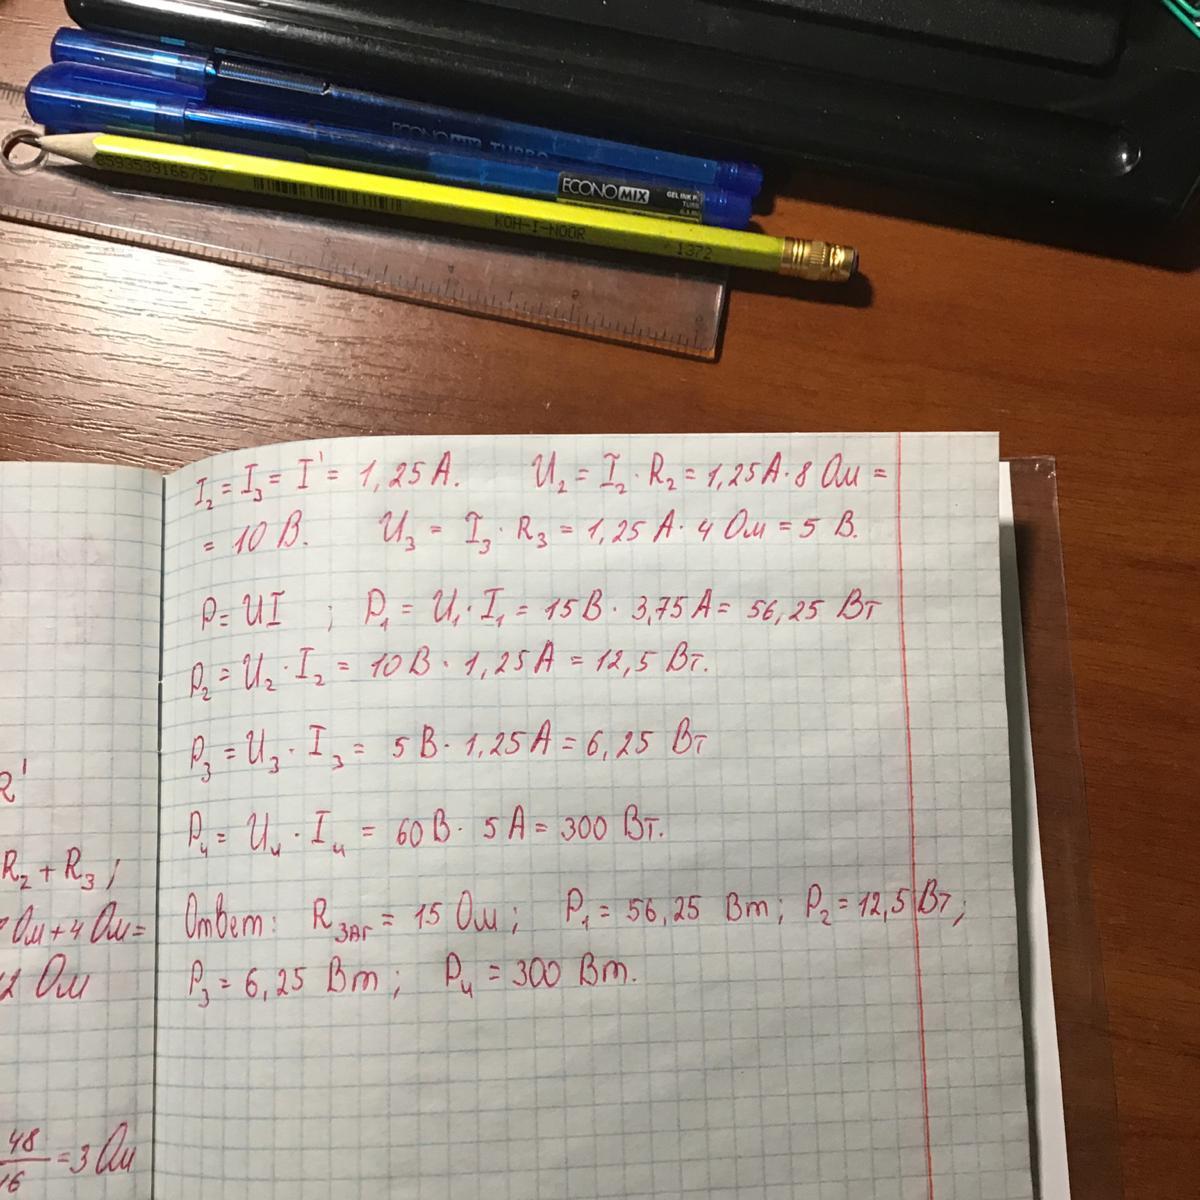 ECONOMIX TURBO
ECONOMIX
GEL INK P
8593539166757
KOH-I-NOOR
1372
I₂ = I₃ = I' = 1,25 А. U₂ = I₂ · R₂ = 1,25 А · 8 Ом =
= 10 В. U₃ = I₃ · R₃ = 1,25 А · 4 Ом = 5 В.
P = UI ; P₁ = U₁ · I₁ = 15 В · 3,75 А = 56,25 Вт
P₂ = U₂ · I₂ = 10 В · 1,25 А = 12,5 Вт.
P₃ = U₃ · I₃ = 5 В · 1,25 А = 6,25 Вт
P₄ = U₄ · I₄ = 60 В · 5 А = 300 Вт.
Ответ: R ЗАГ = 15 Ом ; P₁ = 56,25 Вт ; P₂ = 12,5 Вт ;
P₃ = 6,25 Вт ; P₄ = 300 Вт.
R'
R₂ + R₃ ;
Ом + 4 Ом =
2 Ом
48/16 = 3 Ом